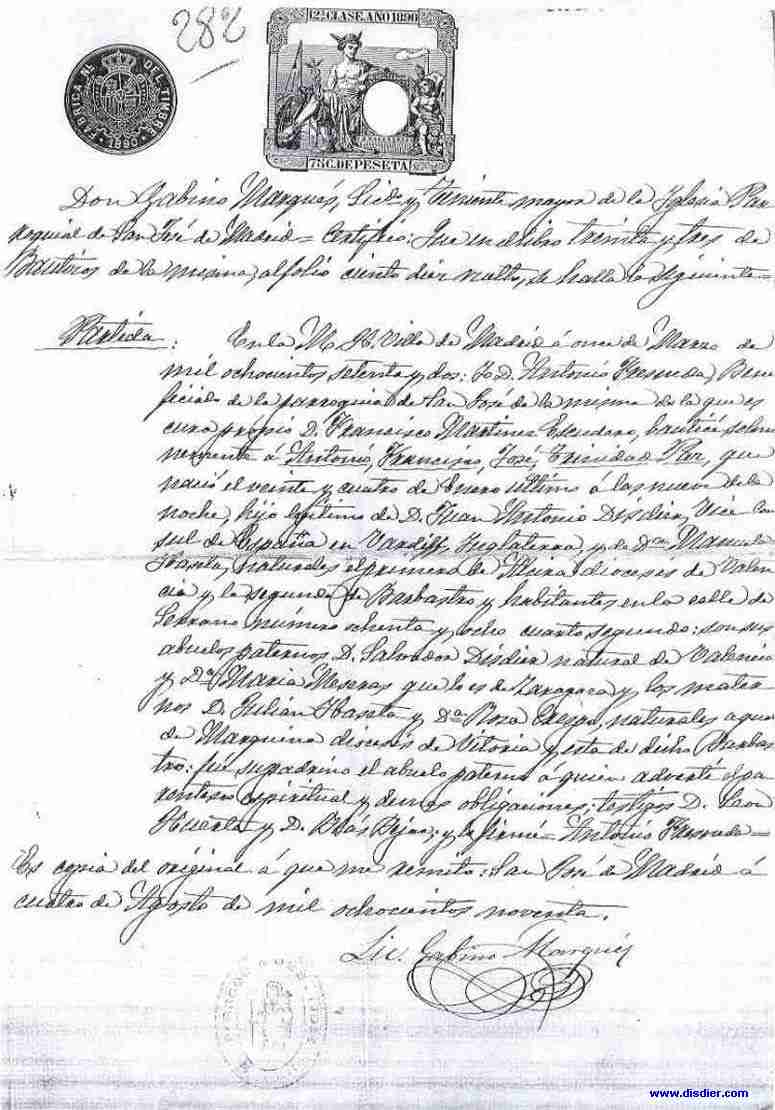 282
12ª CLASE. AÑO 1890
FABRICA NL. DEL TIMBRE
1890
75 C. DE PESETA
Don Gabino Marqués, Licdo. y Teniente mayor de la Iglesia Par
roquial de San José de Madrid = Certifico: Que en el libro treinta y tres de
Bautizos de la misma, al folio ciento diez vuelto, se halla la siguiente =
Partida: En la M. H. Villa de Madrid á once de Marzo de
mil ochocientos setenta y dos: Yo D. Antonio Quesada, Bene
ficiado de la parroquia de San José de la misma de la que es
cura propio D. Francisco Martinez Escudero, bauticé solem
nemente á Antonio, Francisco, José, Trinidad Paz, que
nació el veinte y cuatro de Enero ultimo á las nueve de la
noche, hijo legítimo de D. Juan Antonio Disdier, Vice Con
sul de España en Cardiff, Inglaterra, y de Dña. Manuela
naturales el primero de diocesis de Valen
cia y la segunda de Barbastro y habitantes en la calle de
Serrano número ochenta y ocho cuarto segundo: son sus
abuelos paternos D. Salvador Disdier natural de Valencia
y Dª Maria Meseras que lo es de Zaragoza y los mater
nos D. Julián y Dª Rosa naturales aquel
de Marquina diocesis de Vitoria y esta de dicho Barbas
tro: fué su padrino el abuelo paterno á quien advertí el pa
rentesco espiritual y demas obligaciones: testigos D. Leon
Huerta y D. Blás y lo firmé = Antonio Quesada =
Es copia del original á que me remito: San José de Madrid á
cuatro de Agosto de mil ochocientos noventa.
Lic. Gabino Marqués
www.disdier.com